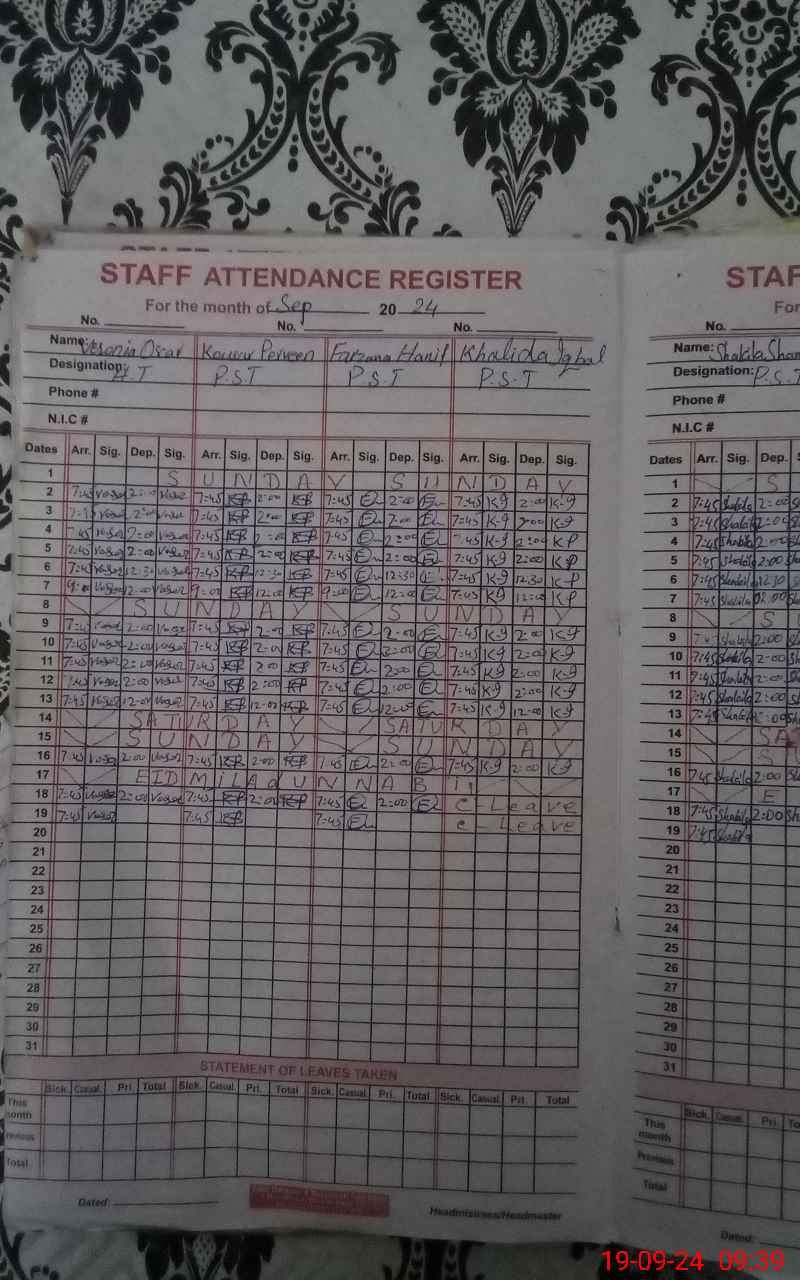 STAFF ATTENDANCE REGISTER
For the month of Sep 20 24
No. No. No.
Name: Vesonia Oscar Kousar Perveen Farzana Hanif Khalida Iqbal
Designation: H.T P.S.T P.S.T P.S.T
Phone #
N.I.C #
Dates Arr. Sig. Dep. Sig. Arr. Sig. Dep. Sig. Arr. Sig. Dep. Sig. Arr. Sig. Dep. Sig.
1 SUNDAY SUNDAY
2 7:45 2:00 7:45 KP 2:00 KP 7:45 2:00 7:45 K-9 2:00 K-9
3 7:45 2:00 7:45 KP 2:00 KP 7:45 2:00 7:45 K-9 2:00 K-9
4 7:45 2:00 7:45 KP 2:00 KP 7:45 2:00 7:45 K-9 2:00 KP
5 7:45 2:00 7:45 KP 2:00 KP 7:45 2:00 7:45 K-9 2:00 KP
6 7:45 12:30 7:45 KP 12:30 KP 7:45 12:30 7:45 K-9 12:30 K-P
7 9:00 12:00 9:00 KP 12:00 KP 9:00 12:00 7:45 K9 12:00 KP
8 SUNDAY SUNDAY
9 7:45 2:00 7:45 KP 2:00 KP 7:45 2:00 7:45 K-9 2:00 K-9
10 7:45 2:00 7:45 KP 2:00 KP 7:45 2:00 7:45 K-9 2:00 K-9
11 7:45 2:00 7:45 KP 2:00 KP 7:45 2:00 7:45 K-9 2:00 K-9
12 7:45 2:00 7:45 KP 2:00 KP 7:45 2:00 7:45 K-9 2:00 K-9
13 7:45 12:00 7:45 KP 12:00 KP 7:45 12:00 7:45 K-9 12:00 K-9
14 SATURDAY SATURDAY
15 SUNDAY SUNDAY
16 7:45 2:00 7:45 KP 2:00 KP 7:45 2:00 7:45 K-9 2:00 K9
17 EID MiLAdUNNABii
18 7:45 2:00 7:45 KP 2:00 KP 7:45 2:00 c-Leave
19 7:45 7:45 KP 7:45 c-Leave
20
21
22
23
24
25
26
27
28
29
30
31
STATEMENT OF LEAVES TAKEN
Sick. Casual. Pri. Total Sick. Casual. Pri. Total Sick. Casual. Pri. Total Sick. Casual. Pri. Total
This month
Previous
Total
Dated: Headmistress/Headmaster
STAF
For
No.
Name: Shakila Sham
Designation: P.S.T
Phone #
N.I.C #
Dates Arr. Sig. Dep. S
1 S
2 7:45 Shakila 2:00
3 7:45 Shakila 2:00
4 7:45 Shakila 2:00
5 7:45 Shakila 2:00
6 7:45 Shakila 12:30
7 7:45 Shakila 12:00
8 S
9 7:45 Shakila 2:00
10 7:45 Shakila 2:00
11 7:45 Shakila 2:00
12 7:45 Shakila 2:00
13 7:45 Shakila 12:00
14 SA
15 S
16 7:45 Shakila 2:00
17 E
18 7:45 Shakila 2:00
19 7:45 Shakila
20
21
22
23
24
25
26
27
28
29
30
31
Sick. Casual. Pri. To
This month
Previous
Total
Dated:
19-09-24 09:39